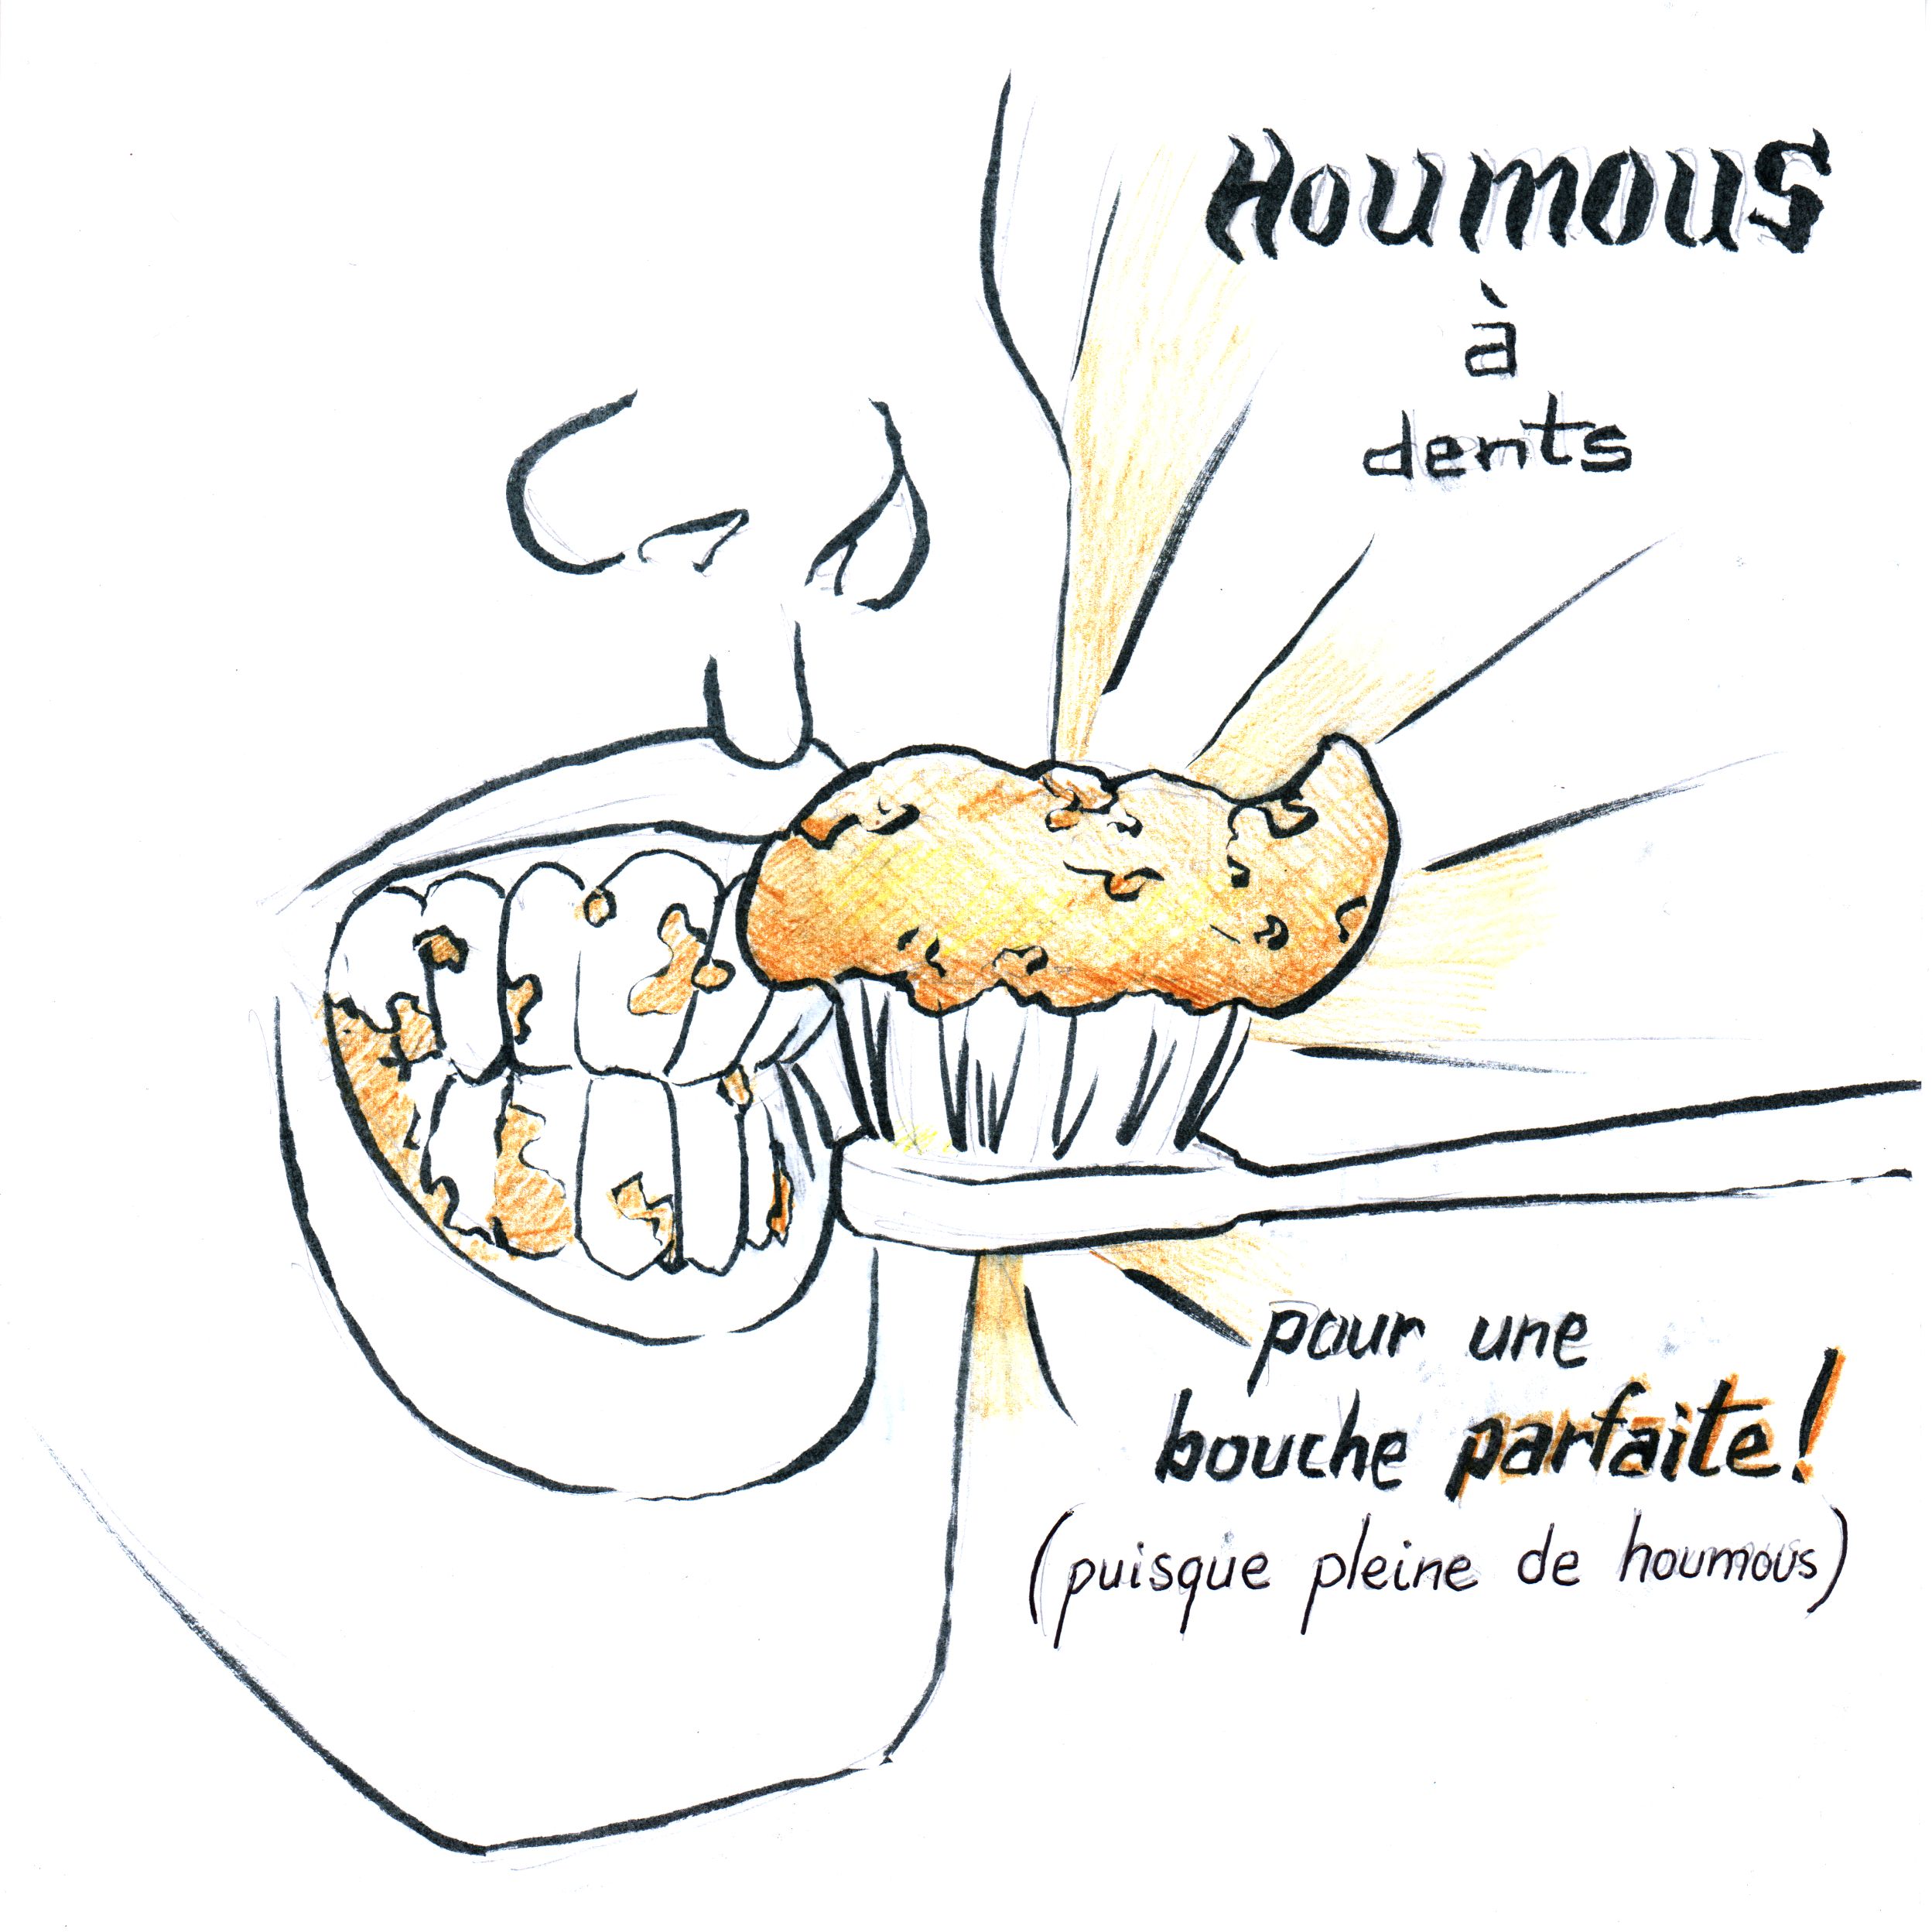 Houmous
à
dents
pour une
bouche parfaite!
(puisque pleine de houmous)